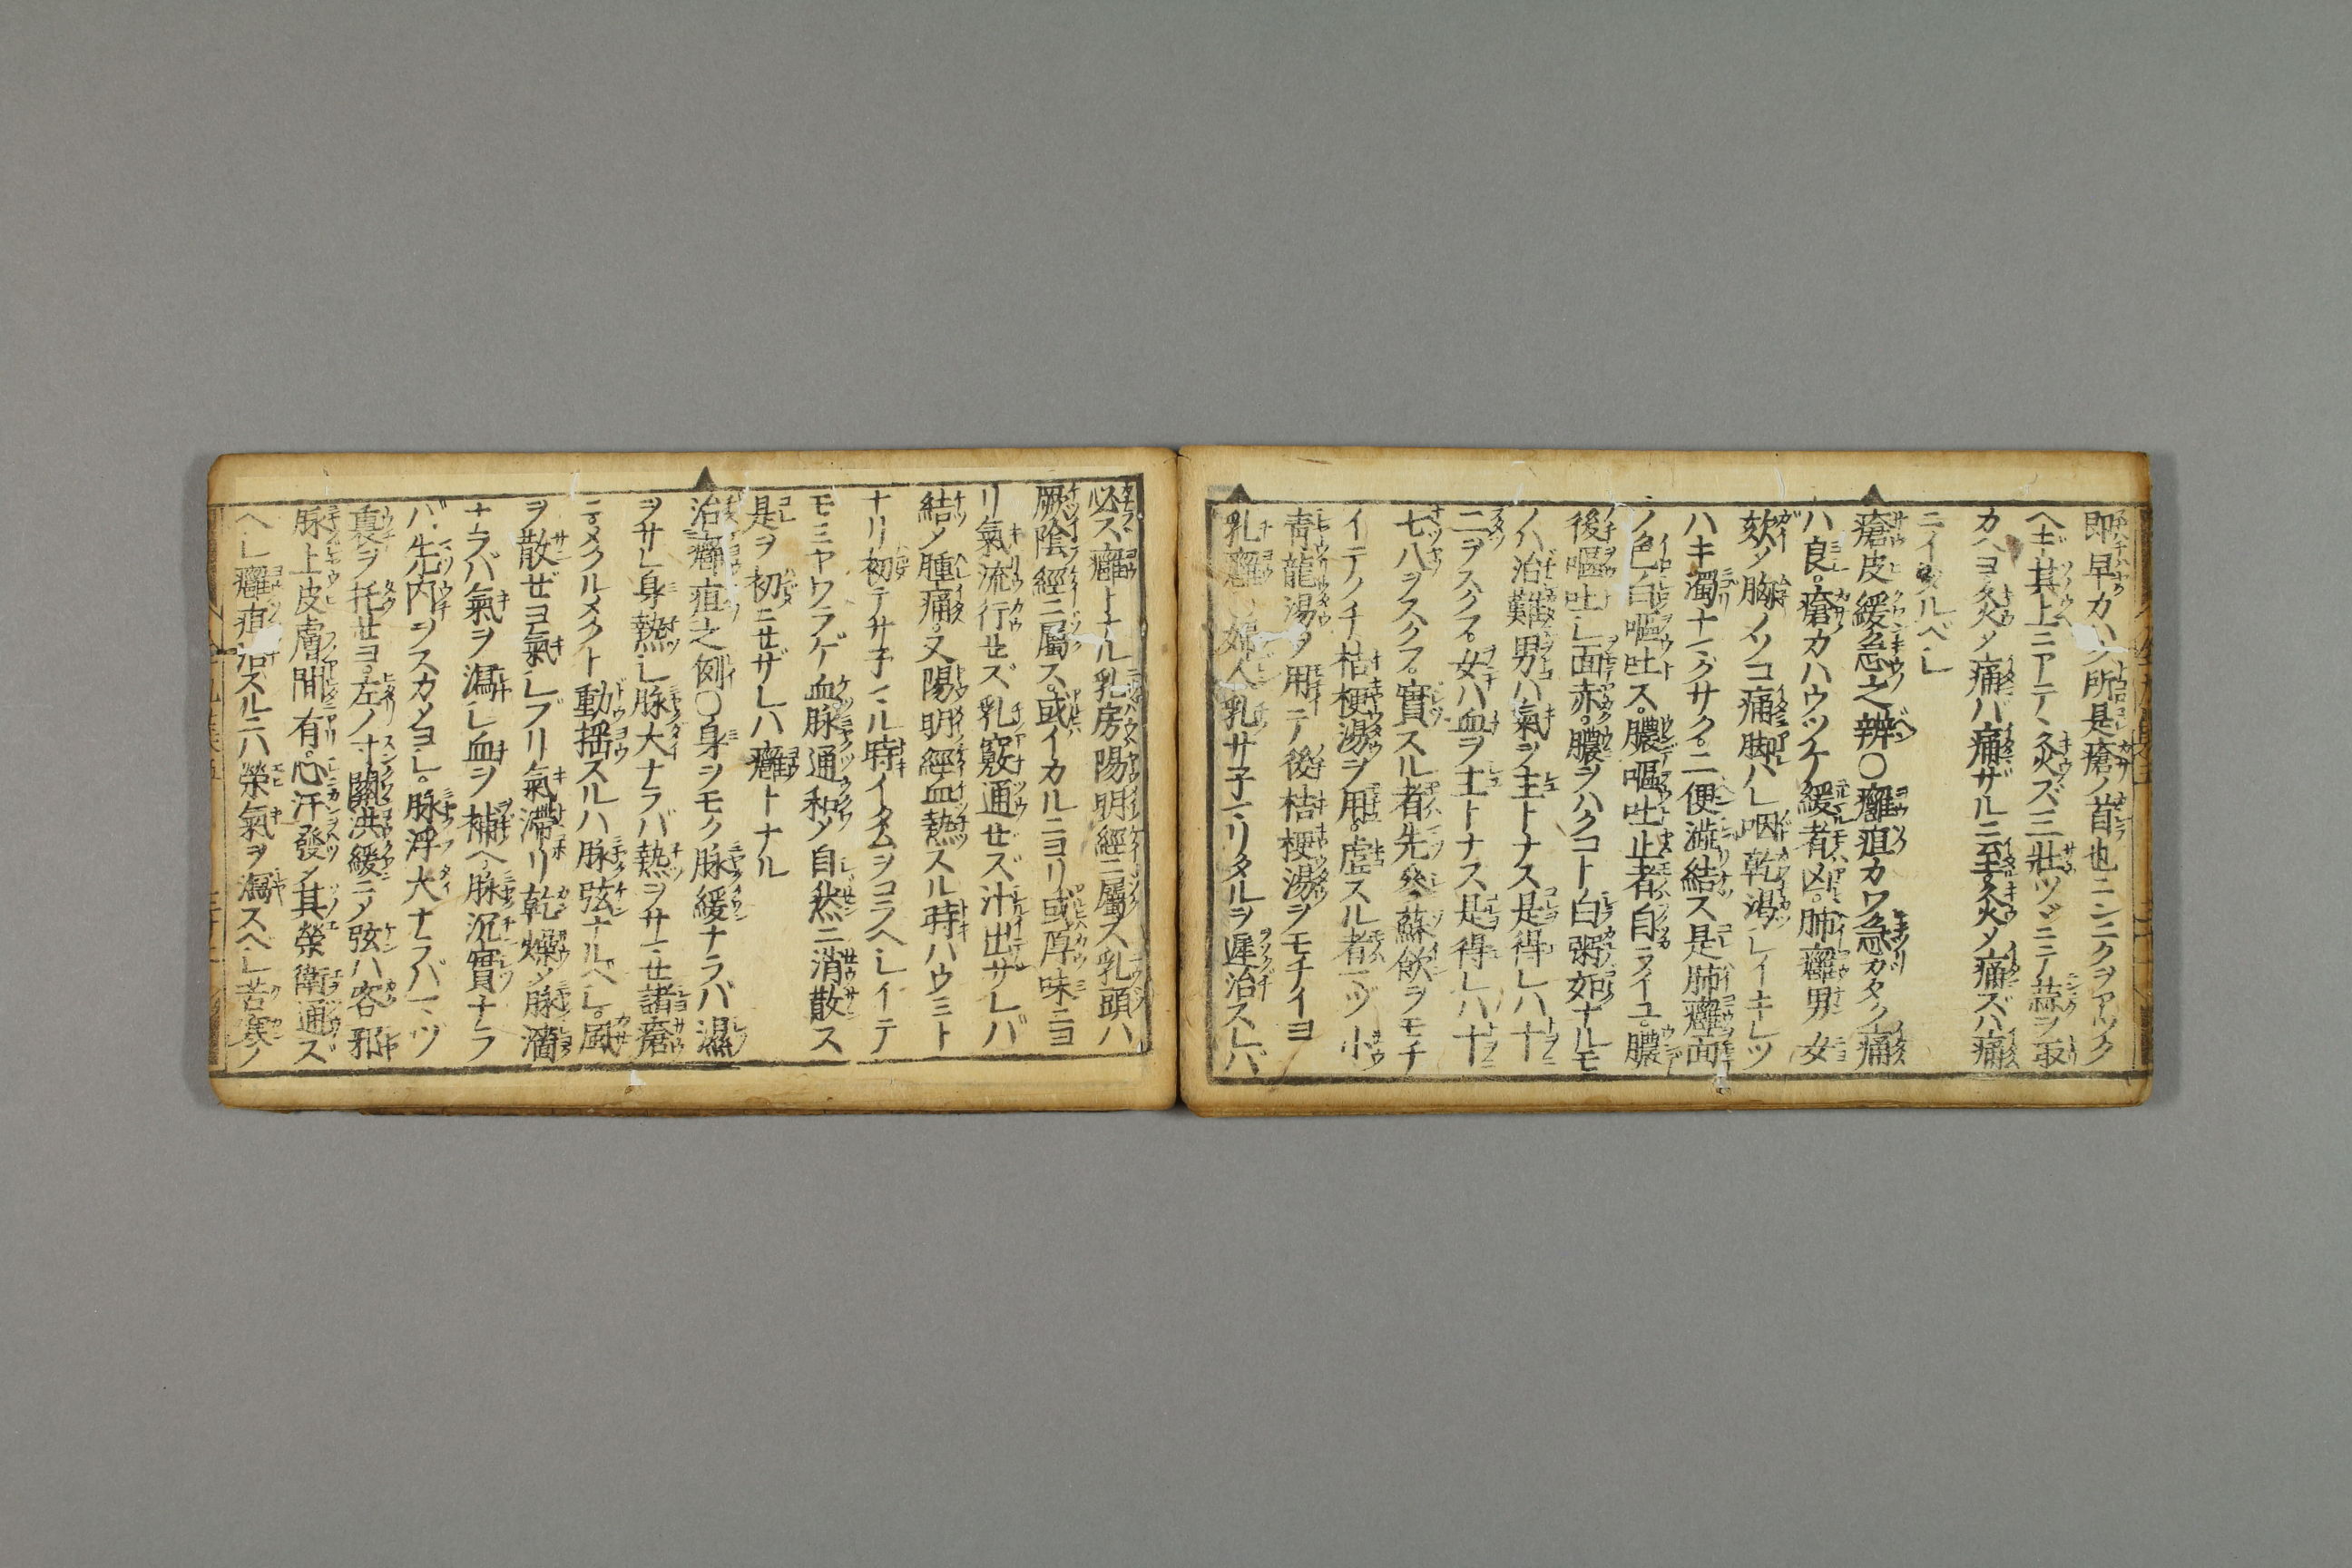 即早カハク所是瘡ノ首也ニンニクヲアツク
ヘギ其上ニアテヽ灸ズ三壯ヅヽニテ蒜ヲ取
カヘヨ灸メ痛バ痛ザルニ至灸メ痛ズハ痛
ニイタルベシ
瘡皮緩急之辨〇癰疽カワ急ガタク痛
ハ良。瘡カハウツケ緩者凶。肺癰男女
欬メ胸ノソコ痛脚ハレ咽乾渇シイキレツ
ハキ濁ナマグサク。二便澁結ス是肺癰面
ノ色白嘔吐ス。膿嘔吐止者自ライユ。膿
後嘔吐シ面赤。膿ヲハクコト白粥如ナルモ
ノハ治難男ハ氣ヲ主トナス是得レハ十
ニヲスクフ。女ハ血ヲ主トナス是得レハ十
七八ヲスクフ。實スル者先參蘇飲ヲモチ
イテノチ桔梗湯ヲ用。虚スル者マヅ小
青龍湯ヲ用テ後桔梗湯ヲモチイヨ
乳癰 婦人乳サ子マリタルヲ遅治スレバ
必ス癰トナル乳房陽明經ニ屬ス乳頭ハ
厥陰經ニ屬ス。或イカルニヨリ或厚味ニヨ
リ氣流行セズ乳竅通セズ汁出サレバ
結メ腫痛。又陽明經血熱スル時ハウミト
ナリ初テサ子マル時イタムヲコラヘシイテ
モミヤワラゲ血脉通和メ自然ニ消散ス
是ヲ初ニせザレハ癰トナル
治癰疽之例〇身ヲモク脉緩ナラバ濕
ヲサレ身熱シ脉大ナラバ熱ヲサマセ諸瘡
マメクルメクト動揺スルハ脉弦ナルヘシ。風
ヲ散ぜヨ氣シブリ氣滯リ乾燥メ脉濇
ナラバ氣ヲ瀉シ血ヲ補ヘ脉沉實ナラ
バ先内ヲスカメヨシ。脉浮大ナラバマヅ
裏ヲ托セヨ。左ノ寸關洪緩ニメ弦ハ客邪
脉上皮膚間有。心汗發メ其榮衛通ズ
ヘシ癰疽治スルニハ榮氣ヲ瀉スヘシ苦寒ノ